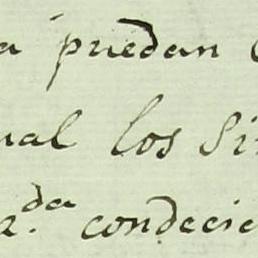 a puedan
ual los Si
2.da condecie